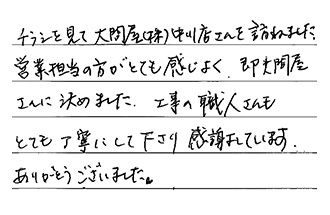 チラシを見て大問屋(株)中川店さんを訪ねました。
営業担当の方がとても感じよく、即大問屋
さんに決めました。工事の職人さんも
とても丁寧にして下さり感謝しています。
ありがとうございました。